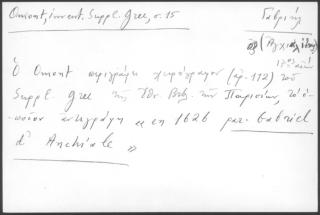 Omont, invent. Suppl. Grec, σ. 15
Γαβριήλ
(Ἀγχιαλίδης)
17ος αἰών
Ὁ Omont περιγράφει χειρόγραφον (ἀρ. 112) τοῦ
Suppl. Grec τῆς Ἐθν. Βιβ. τῶν Παρισίων, τὸ ὁ-
ποῖον ἀντεγράφη « en 1626 par Gabriel
d'Anchiale »